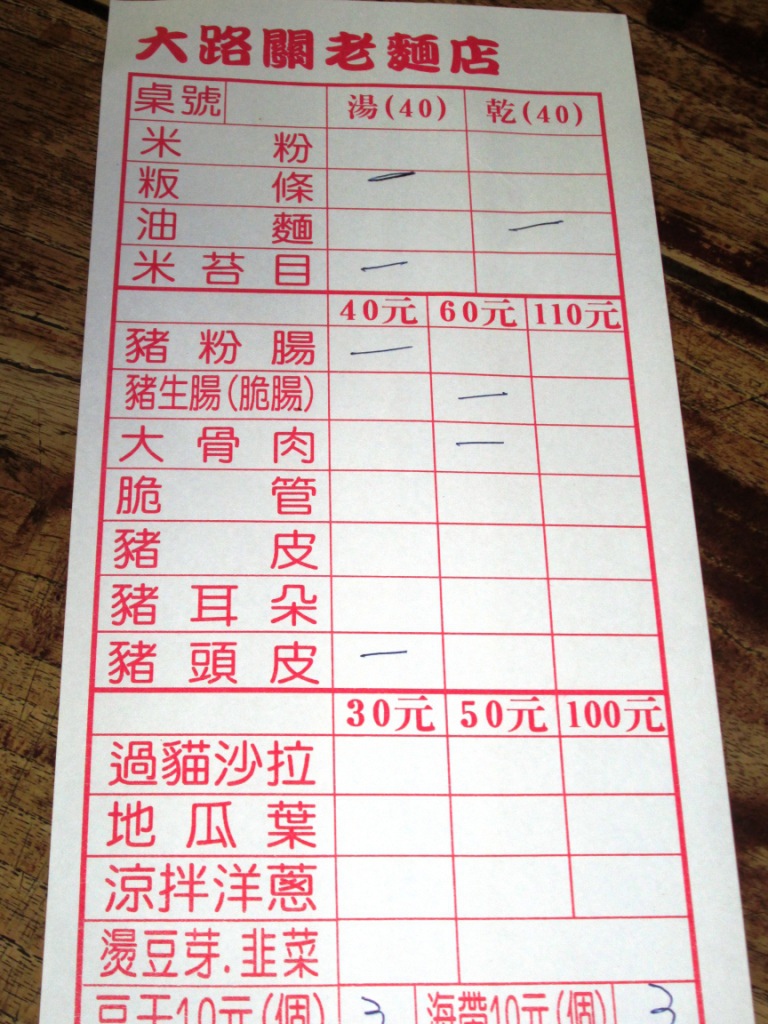 大路關老麵店
桌號 湯(40) 乾(40)
米粉
粄條 一
油麵 一
米苔目 一
40元 60元 110元
豬粉腸 一
豬生腸(脆腸) 一
大骨肉 一
脆管
豬皮
豬耳朵
豬頭皮 一
30元 50元 100元
過貓沙拉
地瓜葉
涼拌洋蔥
燙豆芽.韭菜
豆干10元(個) 3 海帶10元(個) 3